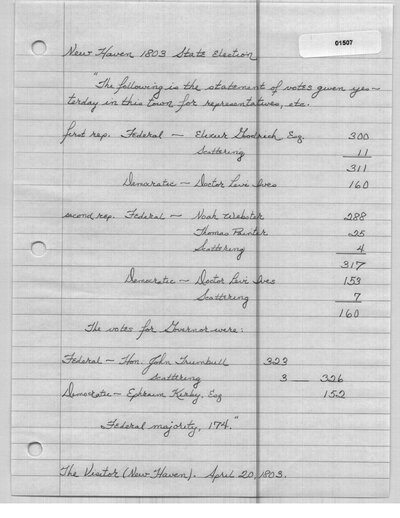 01507
New Haven 1803 State Election
"The following is the statement of votes given yes-
terday in this town for representatives, etc.
first rep. Federal — Elizur Goodrich Esq. 300
Scattering 11
311
Democratic — Doctor Levi Ives 160
second rep. Federal — Noah Webster 288
Thomas Painter 25
Scattering 4
317
Democratic — Doctor Levi Ives 153
Scattering 7
160
The votes for Governor were:
Federal — Hon. John Trumbull 323
scattering 3 — 326
Democratic — Ephraim Kirby, Esq 152
Federal majority, 174."
The Visitor (New Haven). April 20, 1803.